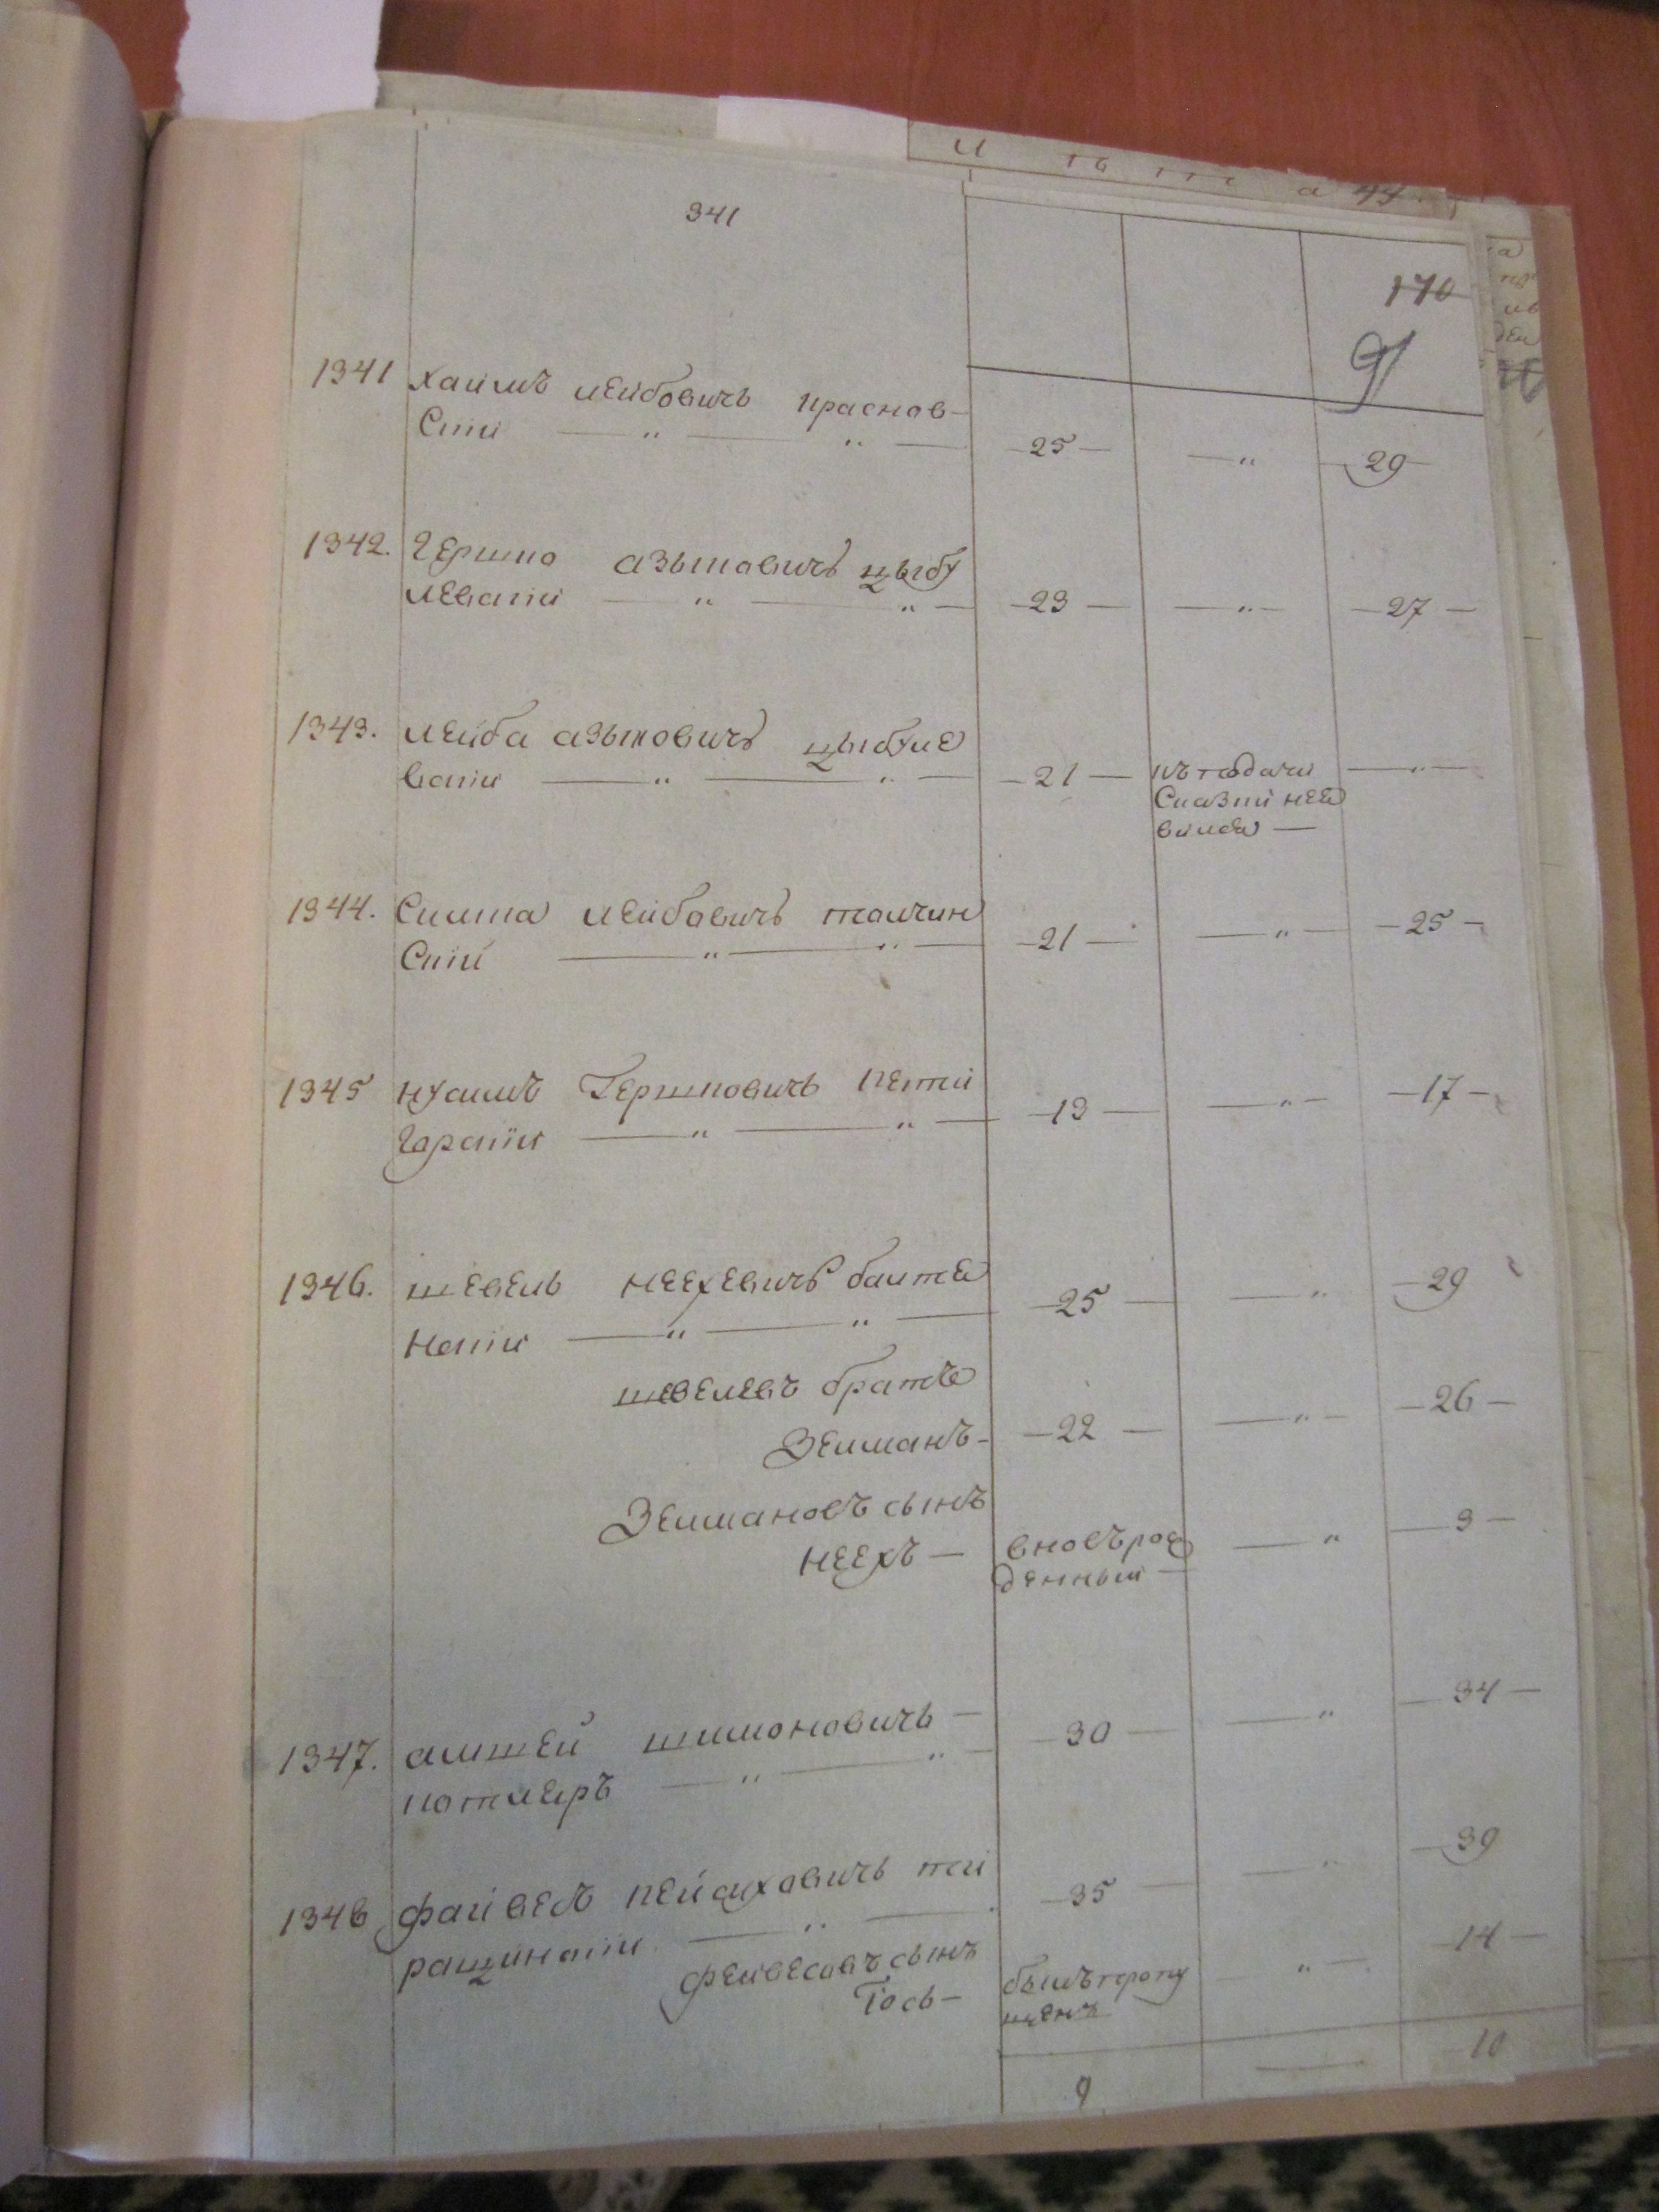 341
170
91
1341 Хаимъ Лейбовичъ Краснов-
скiй — " — " — -25- — " -29-
1342. Гершко Азыковичъ Цыбу
левскiй — " — " — -23- — " — -27-
1343. Лейба Азыковичъ Цыбуле
вскiй — " — " — -21- къ подачи — " —
Сказки нея
вился —
1344. Симха Лейбовичъ Толчин
Скiй — " — " — -21- — " — -25-
1345 Нухимъ Гершковичъ Пети
горскiй — " — " — -13- — " — -17-
1346. Шевель Неехевичъ Балта
нскiй — " — " — -25- — " -29
Шевелевъ братъ
Зелманъ- -22- — " — -26-
Зелмановъ сынъ
Неехъ — вновърож — " -3-
денный —
1347. Аншей Шимоновичъ —
Котляръ — " — " — -30- — " -34-
1348 Файвель Пейсиховичъ Ти
ращинскiй — " — -35- — " -39
Фейвелевъ сынъ
Iось- былъ пропу — " — -14-
щенъ
9 — 10